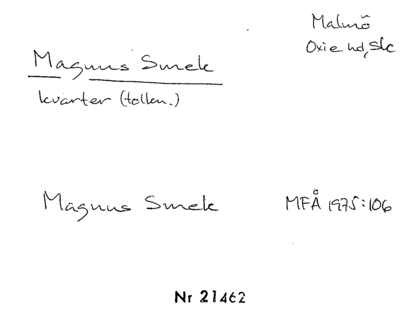 Malmö
Oxie hd, Sk
Magnus Smek
kvarter (tolkn.)
Magnus Smek
MFÅ 1975:106
Nr 21462